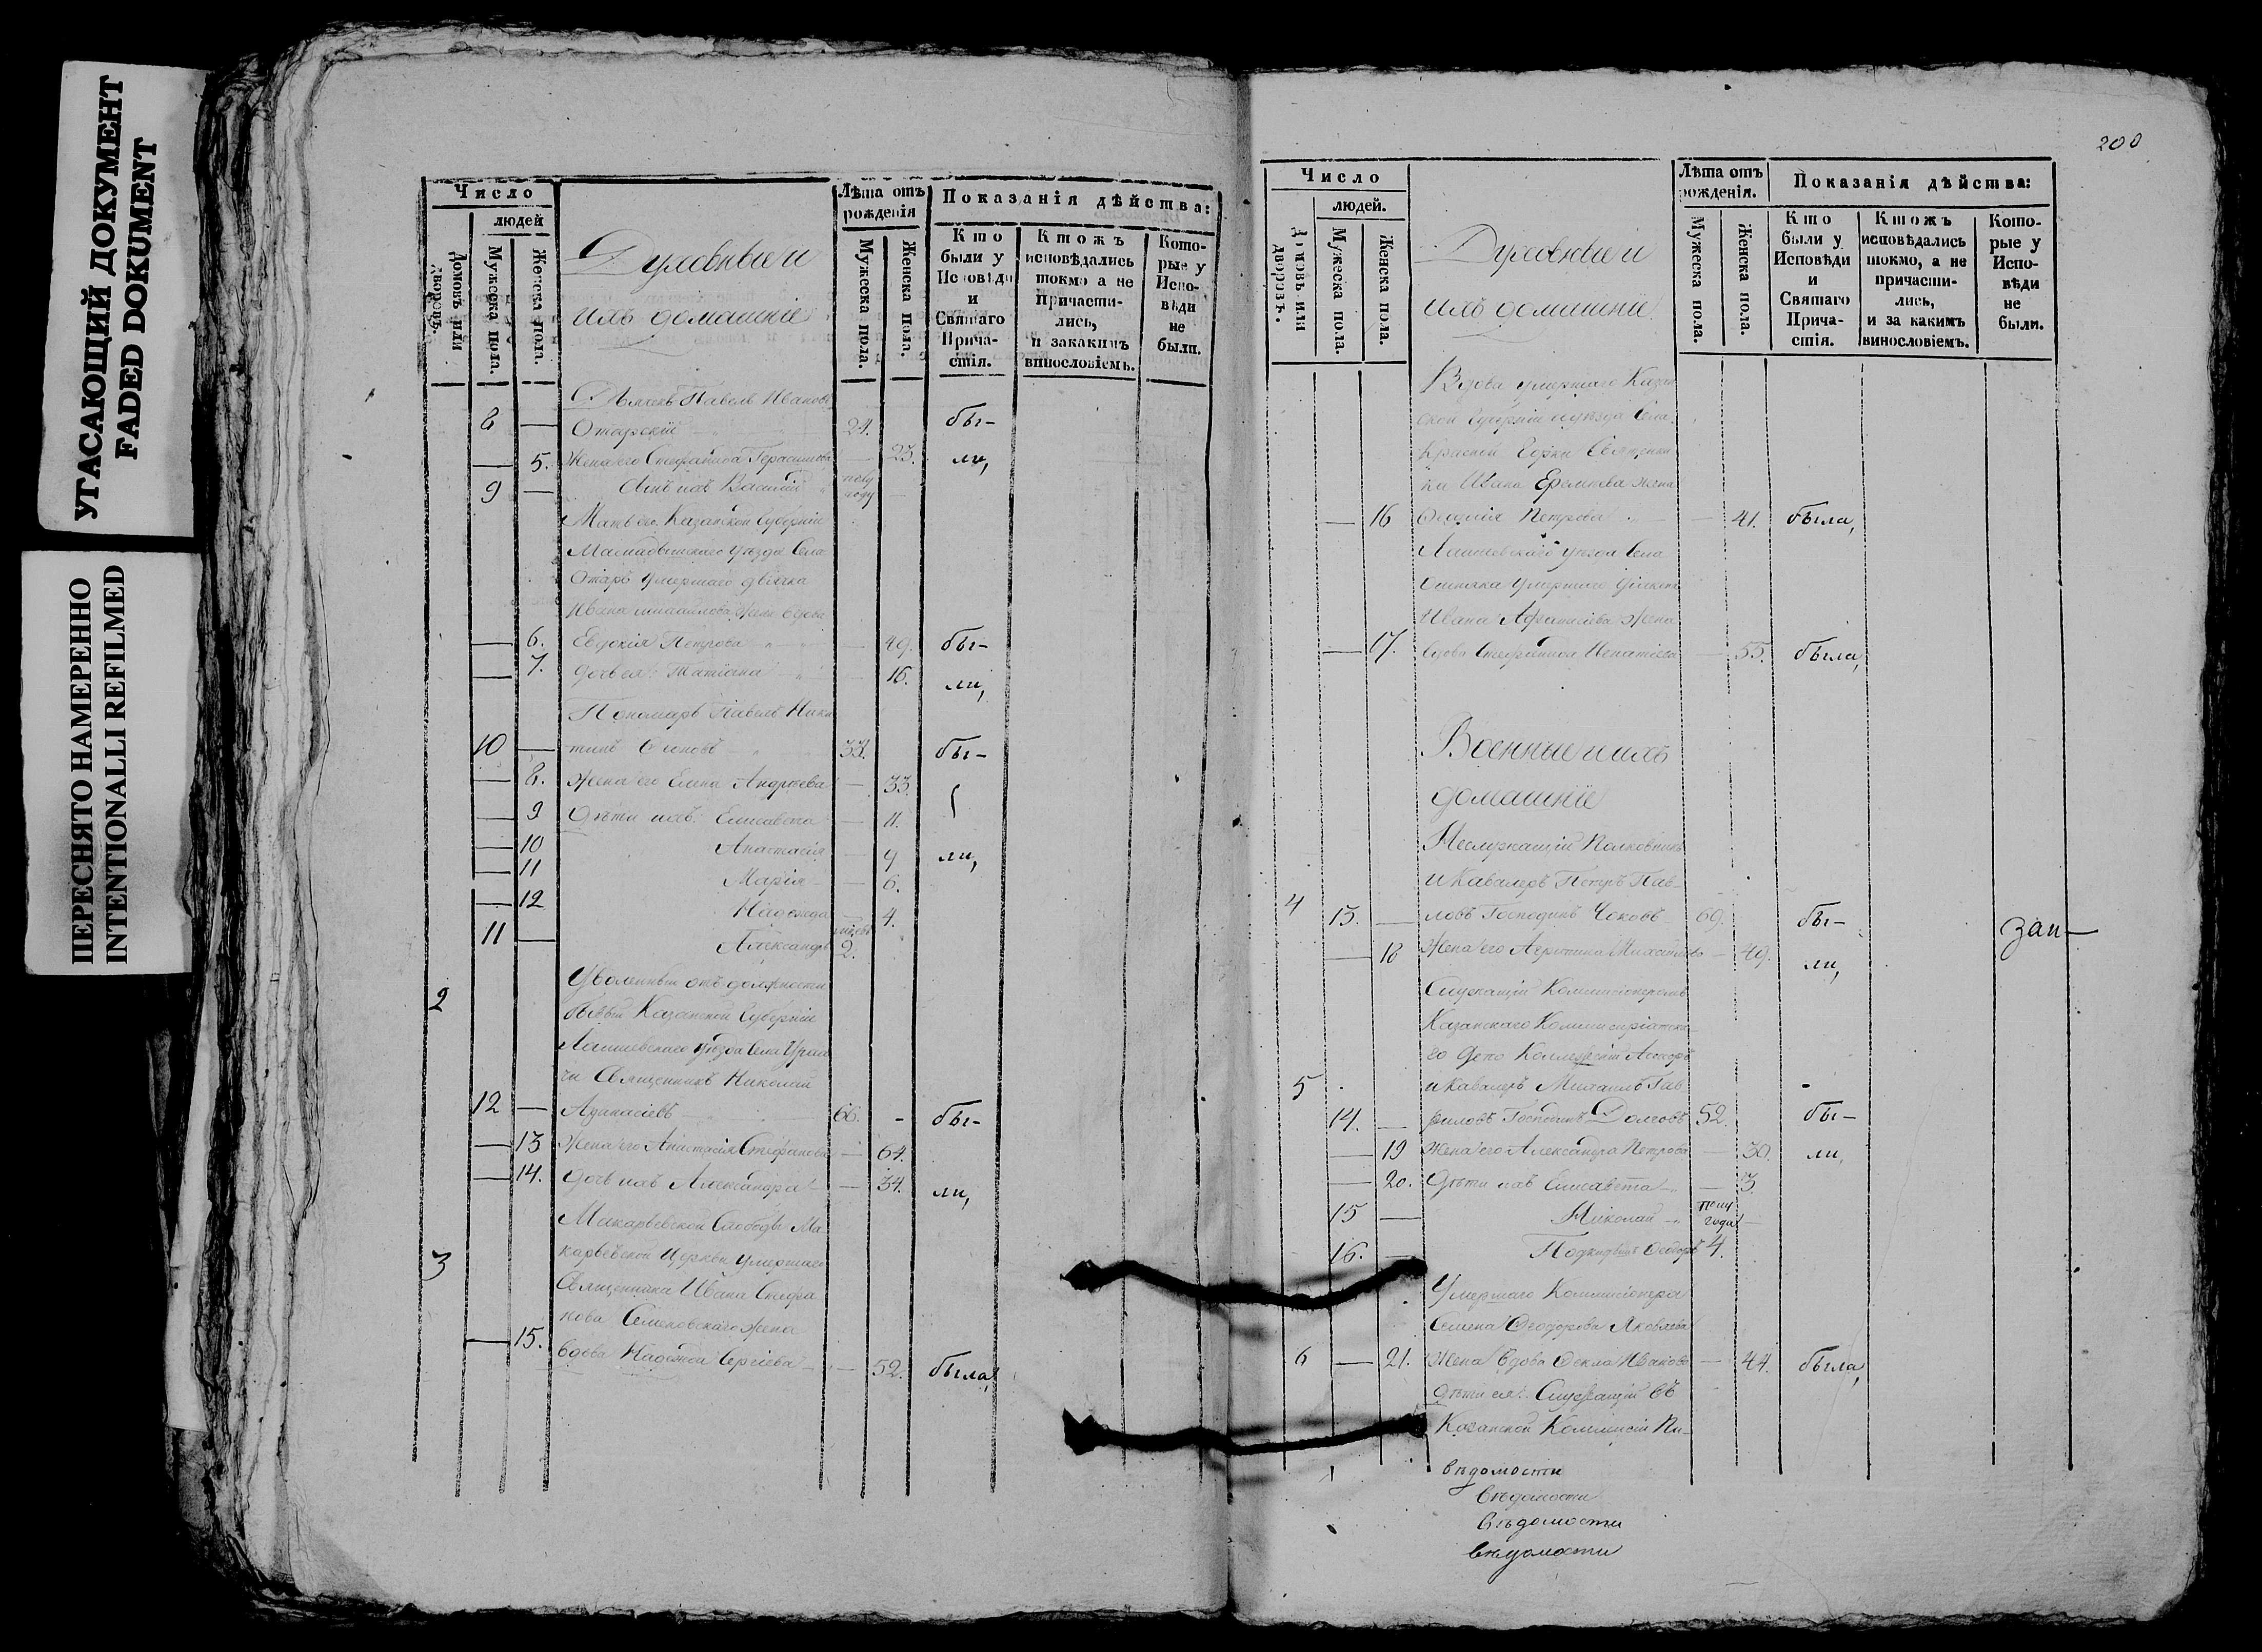 УГАСАЮЩИЙ ДОКУМЕНТ
FADED DOKUMENT
ПЕРЕСНЯТО НАМЕРЕННО
INTENTIONALLI REFILMED
Число
людей
Домовъ или дворовъ.
Мужеска пола.
Женска пола.
Духовные и
ихъ домашние
Лѣта отъ рожденія
Мужеска пола.
Женска пола.
Показанія дѣйства:
Кто были у Исповѣди и Святаго Прича-стія.
Ктожъ исповѣдались токмо а не Причасти-лись, и закакимъ винословіемъ.
Кото-рые у Испо-вѣди не были.
Павелъ Иванов
8 — Отарскій 24. бы-
— 5. Жена его Стефанида Герасимова — 23. ли,
9 — Сынъ ихъ Василій полу году —
Мать его Казанской Губерніи
Мамадышскаго уѣзда Села
Отаръ умершаго дьячка
Ивана Михайлова жена вдова
— 6. Евдокія Петрова — 49. бы-
— 7. дочь ея Татіана — 16. ли,
Пономарь Павелъ Ники
10 — тинъ 33. бы-
— 8. Жена его Елена Андреева — 33.
— 9 Дѣти ихъ: Елисавета — 11.
— 10 Анастасія — 9 ли,
— 11 Марія — 6.
— 12 Надежда — 4.
11 — Александръ 2.
2 Уволенный отъ должности
бывый Казанской Губерніи
Лаишевскаго уѣзда Села
чи Священникъ Николай
12 — Аѳанасіевъ 66. - бы-
— 13 Жена его Анастасія Стефанова — 64.
— 14. дочь ихъ Александра — 34. ли,
Макарьевской Слободы Ма
3 карьевской Церкви умершаго
Священника Ивана Стефа
нова Семеновскаго жена
— 15. вдова Надежда Сергіева — 52. была,
200
Число
людей.
Домовъ или дворовъ.
Мужеска пола.
Женска пола.
Духовные и
ихъ домашние
Лѣта отъ рожденія.
Мужеска пола.
Женска пола.
Показанія дѣйства:
Кто были у Исповѣди и Святаго Прича-стія.
Ктожъ исповѣдались токмо, а не причасти-лись, и за какимъ винословіемъ.
Кото-рые у Испо-вѣди не были.
Вдова умершаго Казан
ской Губерніи уѣзда Села
Красной Горки Священни
ка Ивана Еремѣева жена
— 16 Петрова — 41. была,
Лаишевскаго уѣзда Села
умершаго
Ивана Афанасіева жена
— 17. вдова Стефанида Игнатіева — 55. была,
Военные и ихъ
домашніе
Неслужащій Полковникъ
и Кавалеръ Петръ Пав-
4 13. — ловъ Господинъ 69. бы- зап—
— 18 Жена его Михайлова — 49. ли,
Служащій Коммисіонеромъ
Казанскаго Коммисаріатска-
го Депо Коллежскій Ассесоръ
5 и Кавалеръ Михаилъ Гав
14. — риловъ Господинъ 52. бы-
— 19 Жена его Александра Петрова — 30. ли,
— 20. Дѣти ихъ Елисавета — 3.
15 — Николай полу года —
16. — Подкидышъ Ѳеодоръ 4.
Умершаго Коммисіонера
Семена Ѳеодорова Яковлева
6 — 21. Жена вдова Ѳекла Иванова — 44. была,
дѣти ея: Служащій въ
Казанской Коммисіи Пи-
вѣдомости
вѣдомости
вѣдомости
вѣдомости